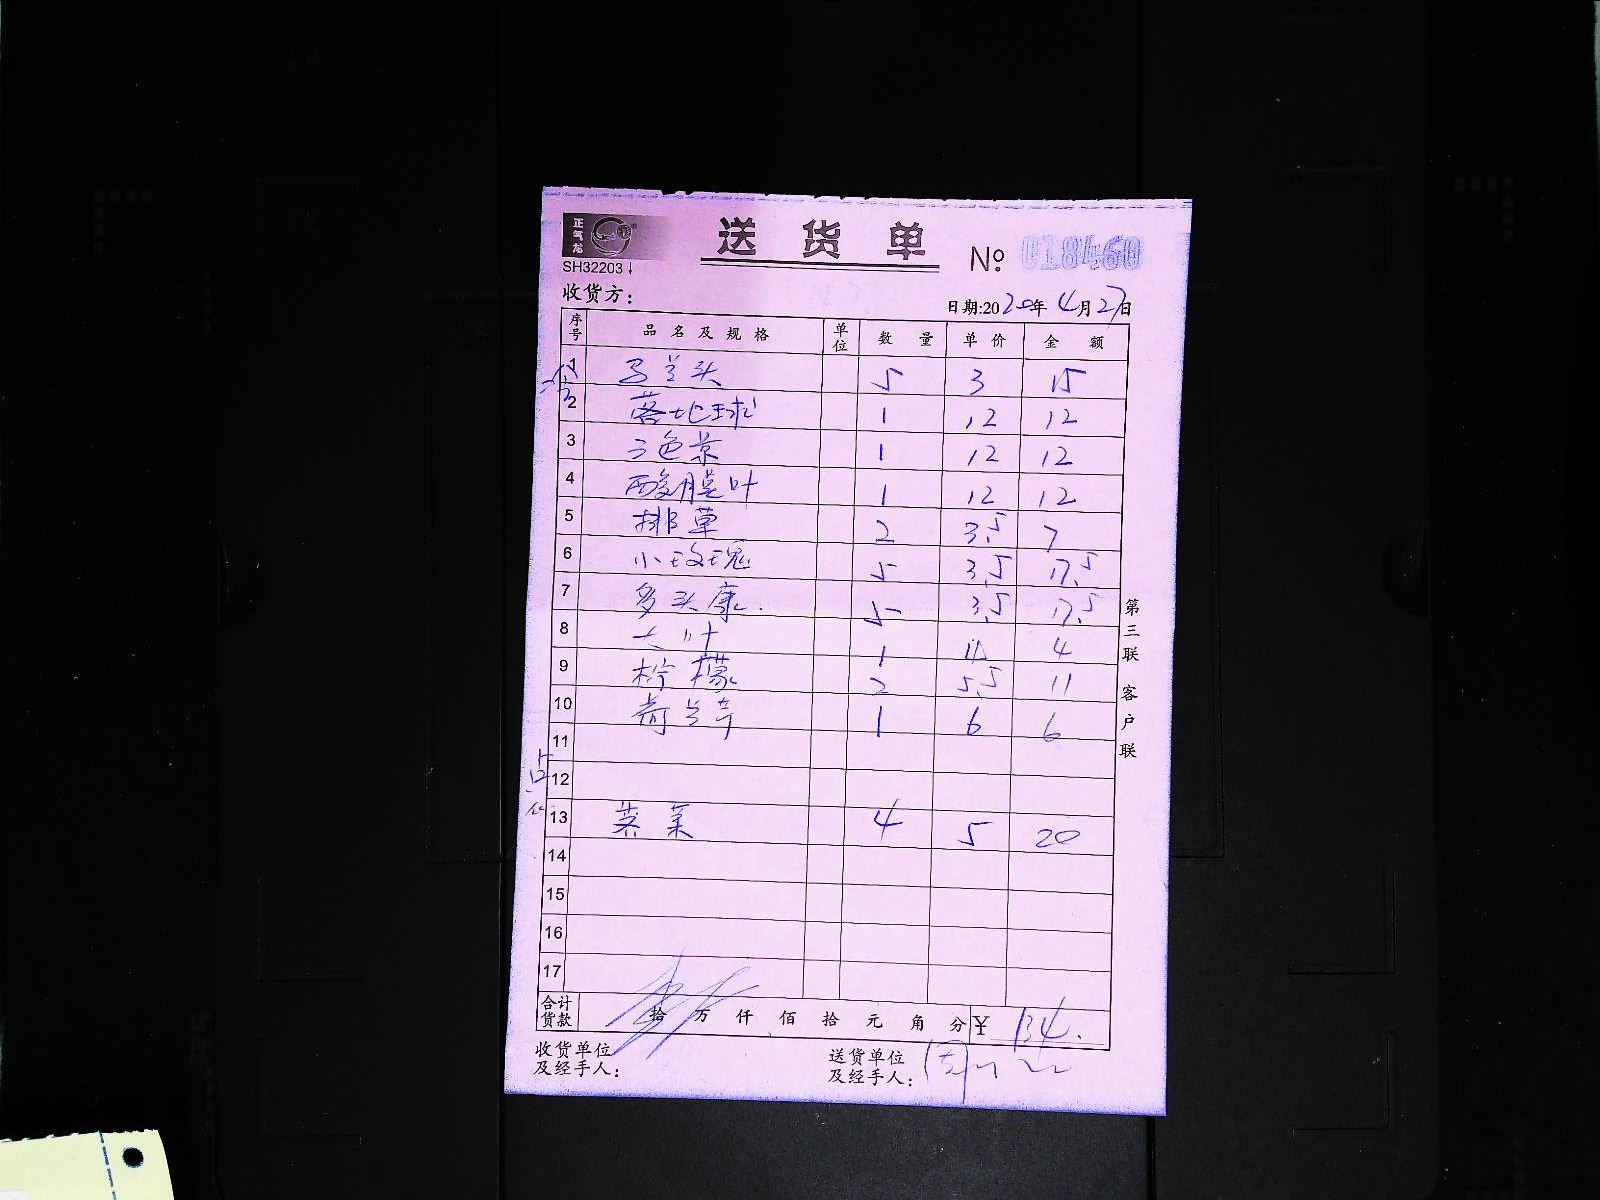 正气龙
送货单
№ 018460
SH32203
收货方：
日期:2020年4月27日
序号 品名及规格 单位 数量 单价 金额
1 马兰头 5 3 15
2 落地球 1 12 12
3 三色菜 1 12 12
4 酸膜叶 1 12 12
5 排草 2 3.5 7
6 小玫瑰 5 3.5 17.5
7 多头康. 5 3.5 17.5
8 大叶 1 4
9 柠檬 2 5.5 11
10 荷兰芹 1 6 6
11
12
13 荠菜 4 5 20
14
15
16
17
合计货款 拾万仟佰拾元角分 ¥ 134.
收货单位及经手人：
送货单位及经手人：
第三联 客户联